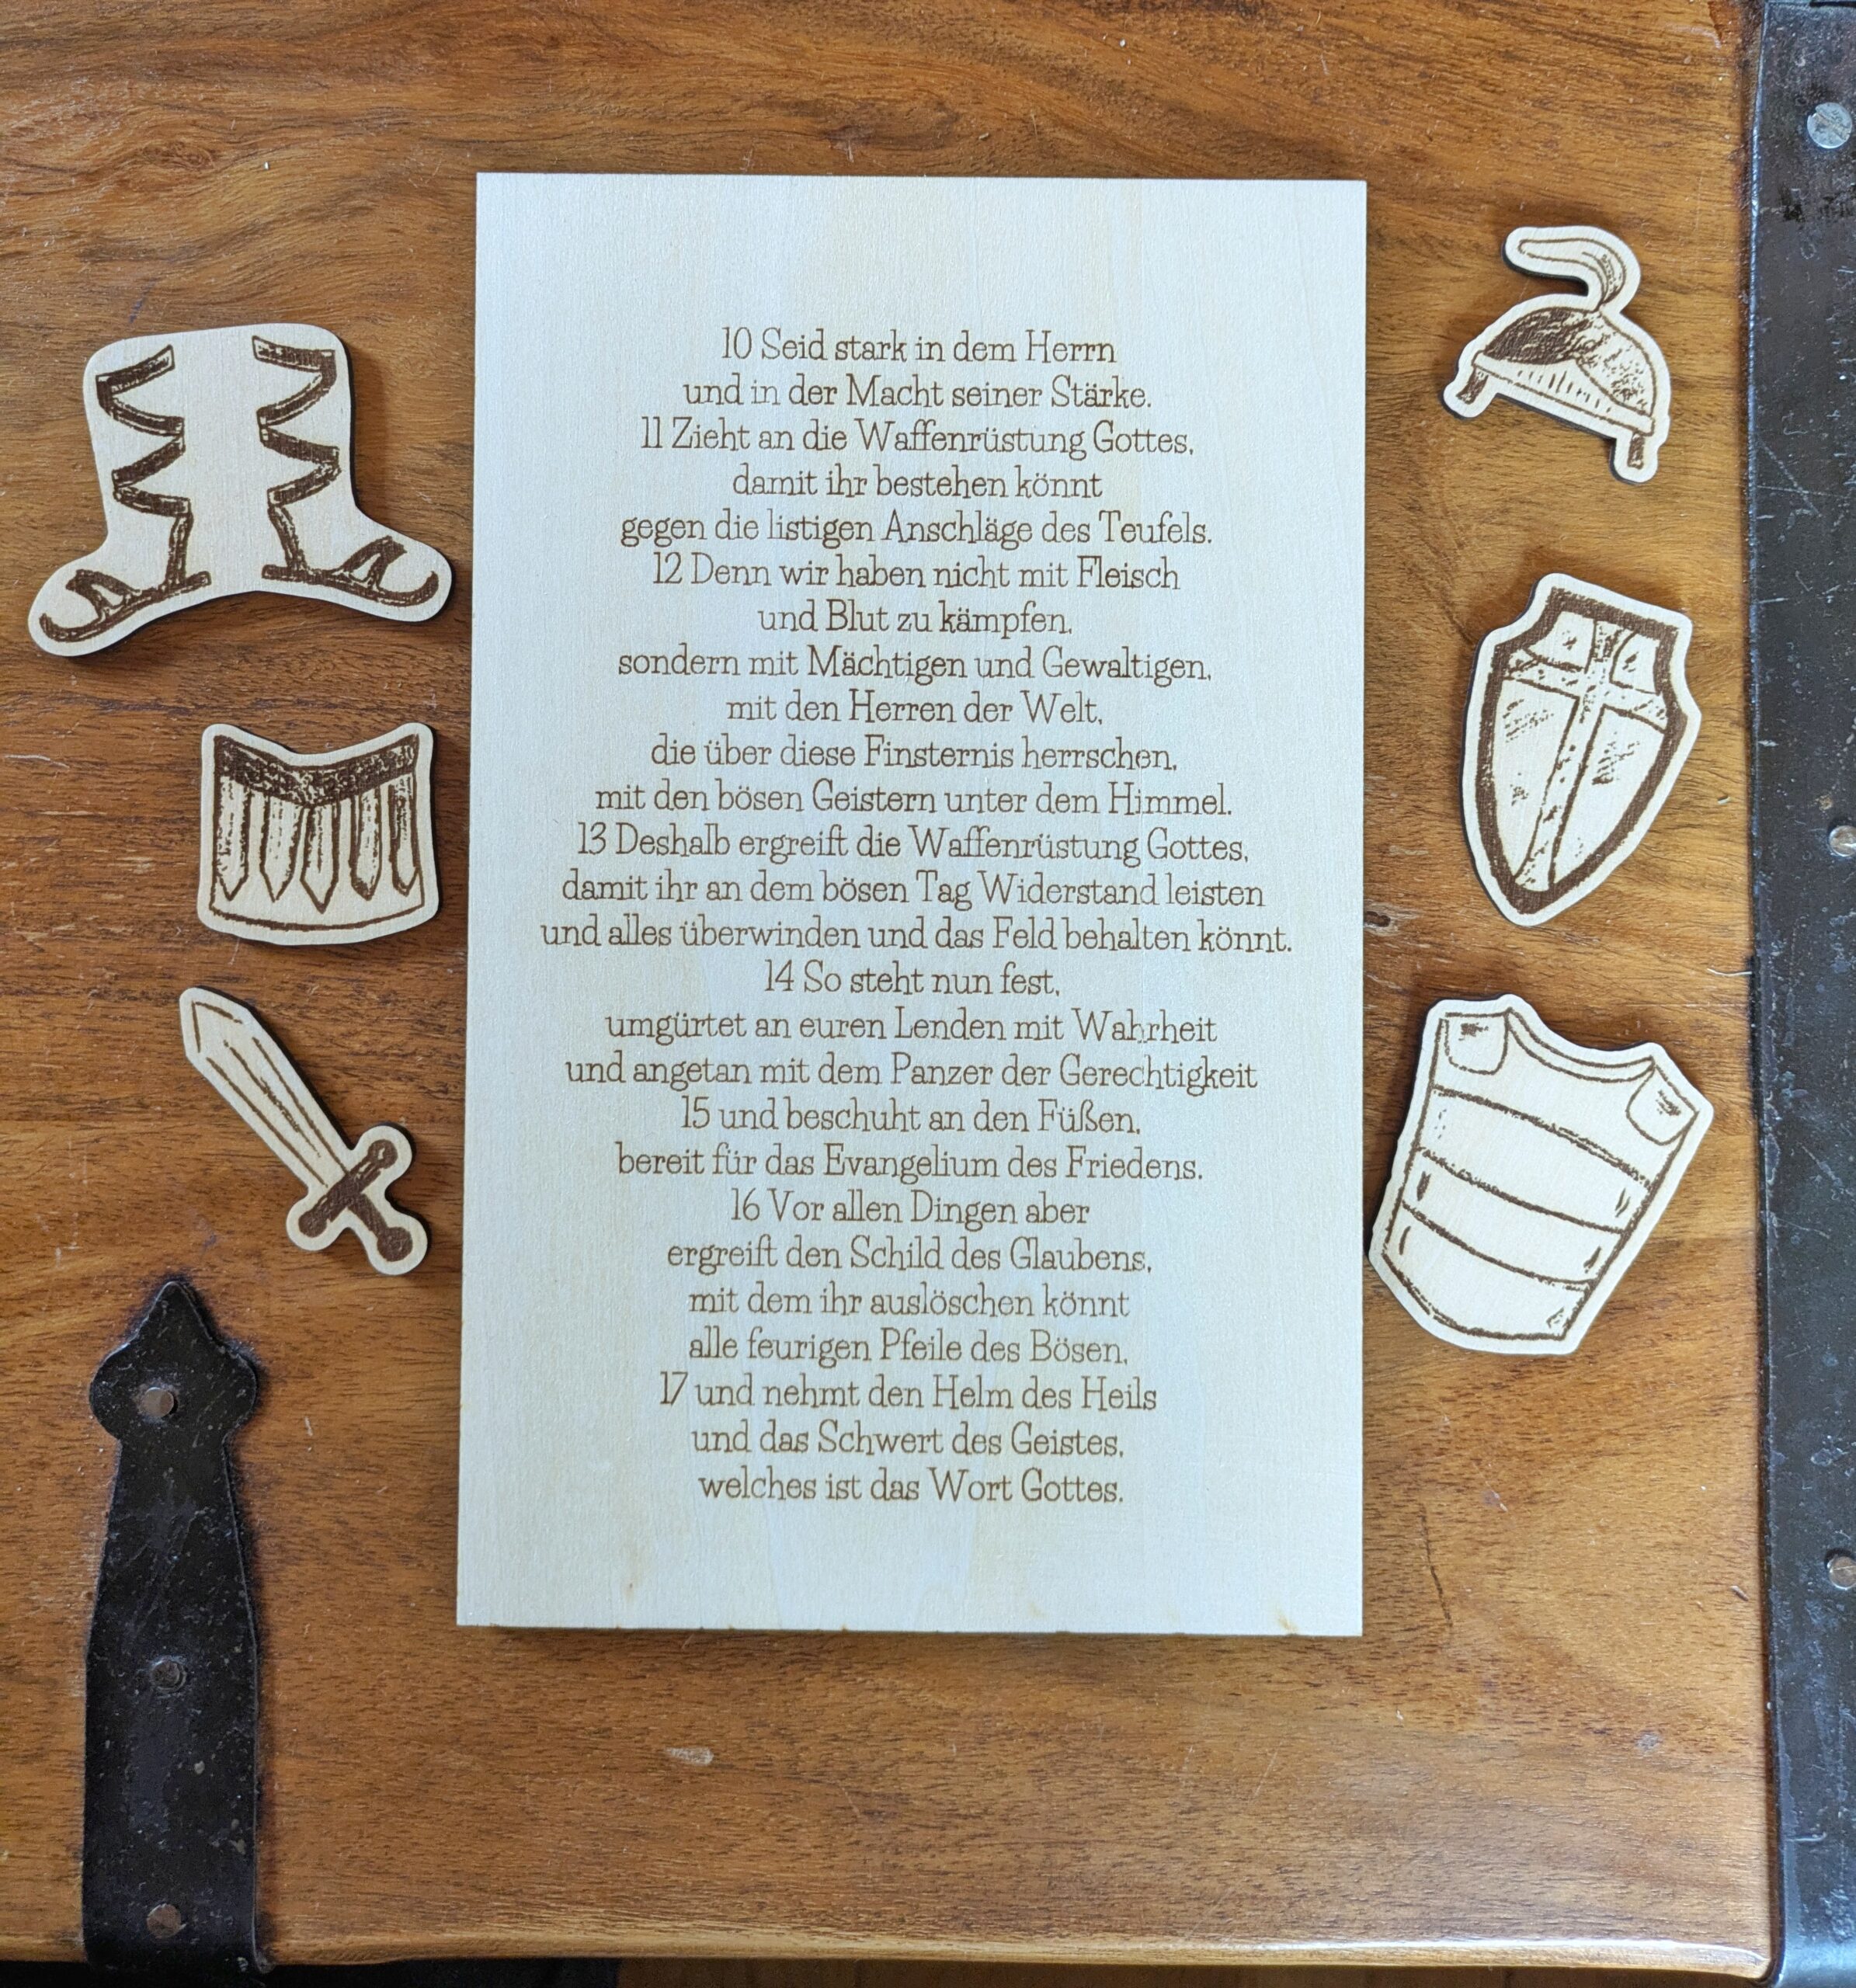 10 Seid stark in dem Herrn
und in der Macht seiner Stärke.
11 Zieht an die Waffenrüstung Gottes,
damit ihr bestehen könnt
gegen die listigen Anschläge des Teufels.
12 Denn wir haben nicht mit Fleisch
und Blut zu kämpfen,
sondern mit Mächtigen und Gewaltigen,
mit den Herren der Welt,
die über diese Finsternis herrschen,
mit den bösen Geistern unter dem Himmel.
13 Deshalb ergreift die Waffenrüstung Gottes,
damit ihr an dem bösen Tag Widerstand leisten
und alles überwinden und das Feld behalten könnt.
14 So steht nun fest,
umgürtet an euren Lenden mit Wahrheit
und angetan mit dem Panzer der Gerechtigkeit
15 und beschuht an den Füßen,
bereit für das Evangelium des Friedens.
16 Vor allen Dingen aber
ergreift den Schild des Glaubens,
mit dem ihr auslöschen könnt
alle feurigen Pfeile des Bösen,
17 und nehmt den Helm des Heils
und das Schwert des Geistes,
welches ist das Wort Gottes.